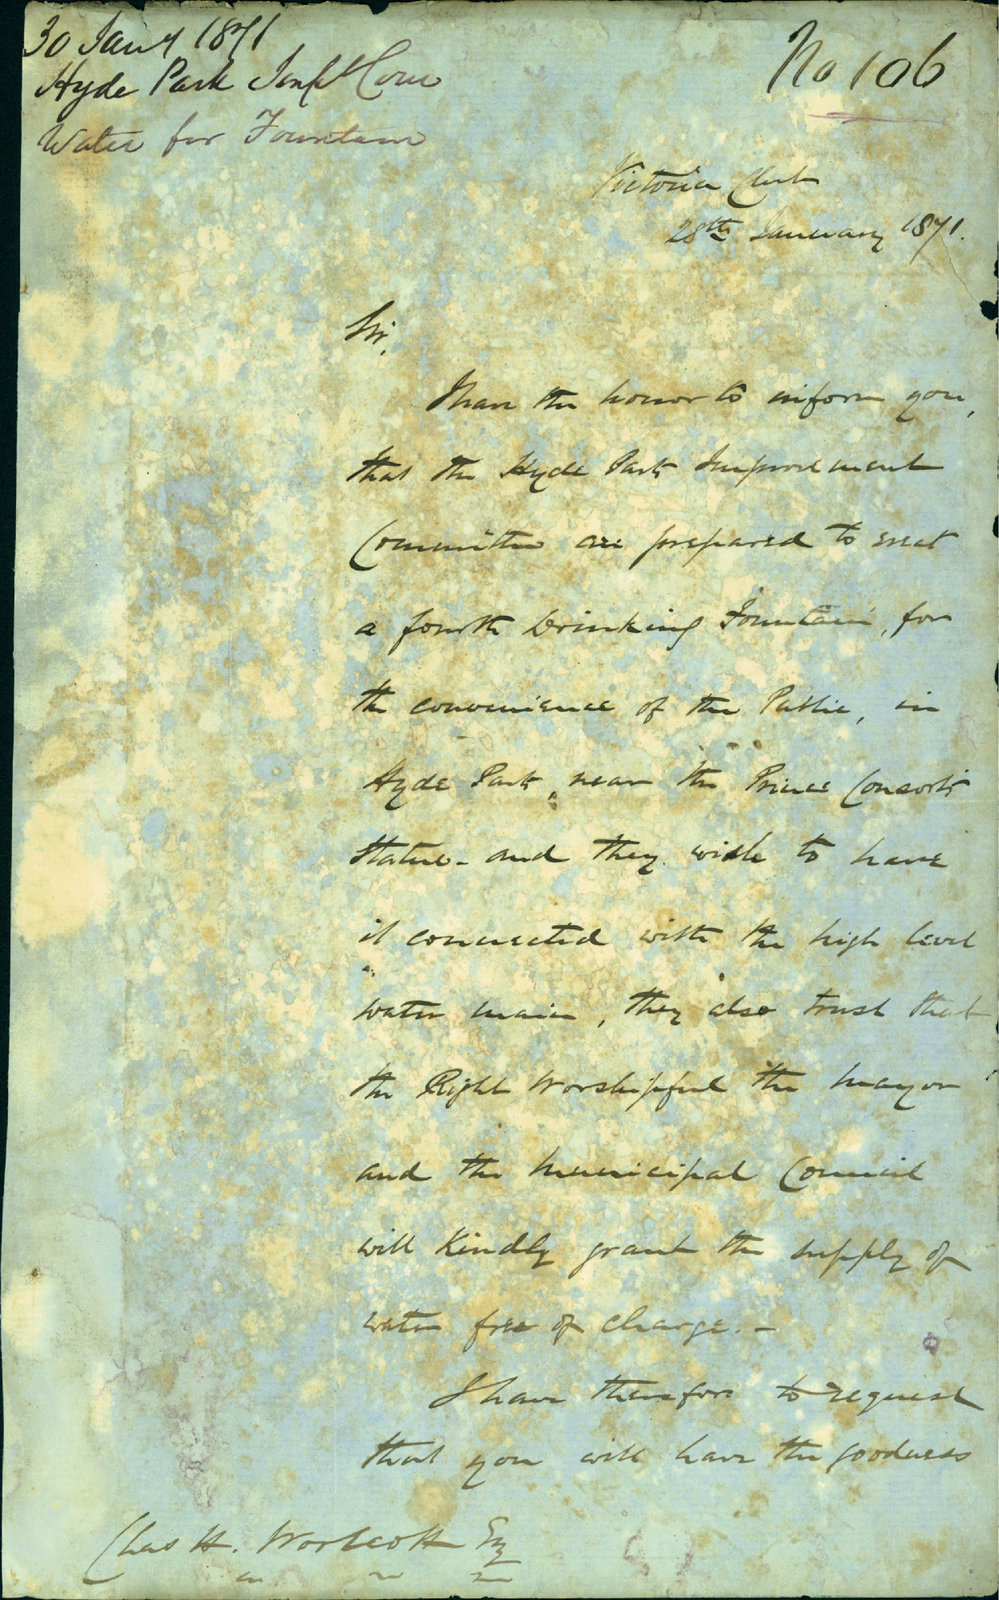 30 Jany 1871
Hyde Park Impt Com
Water for Fountain
No 106
Victoria Club
28th January 1871.
Sir,
I have the honor to inform you,
that the Hyde Park Improvement
Committee are prepared to erect
a fourth Drinking Fountain, for
the convenience of the Public, in
Hyde Park, near the Prince Consort's
Statue - and they wish to have
it connected with the high level
water main, they also trust that
the Right Worshipful the Mayor
and the Municipal Council
will kindly grant the supply of
water free of charge. -
I have therefore to request
that you will have the goodness
Chas H. Woolcott Esq